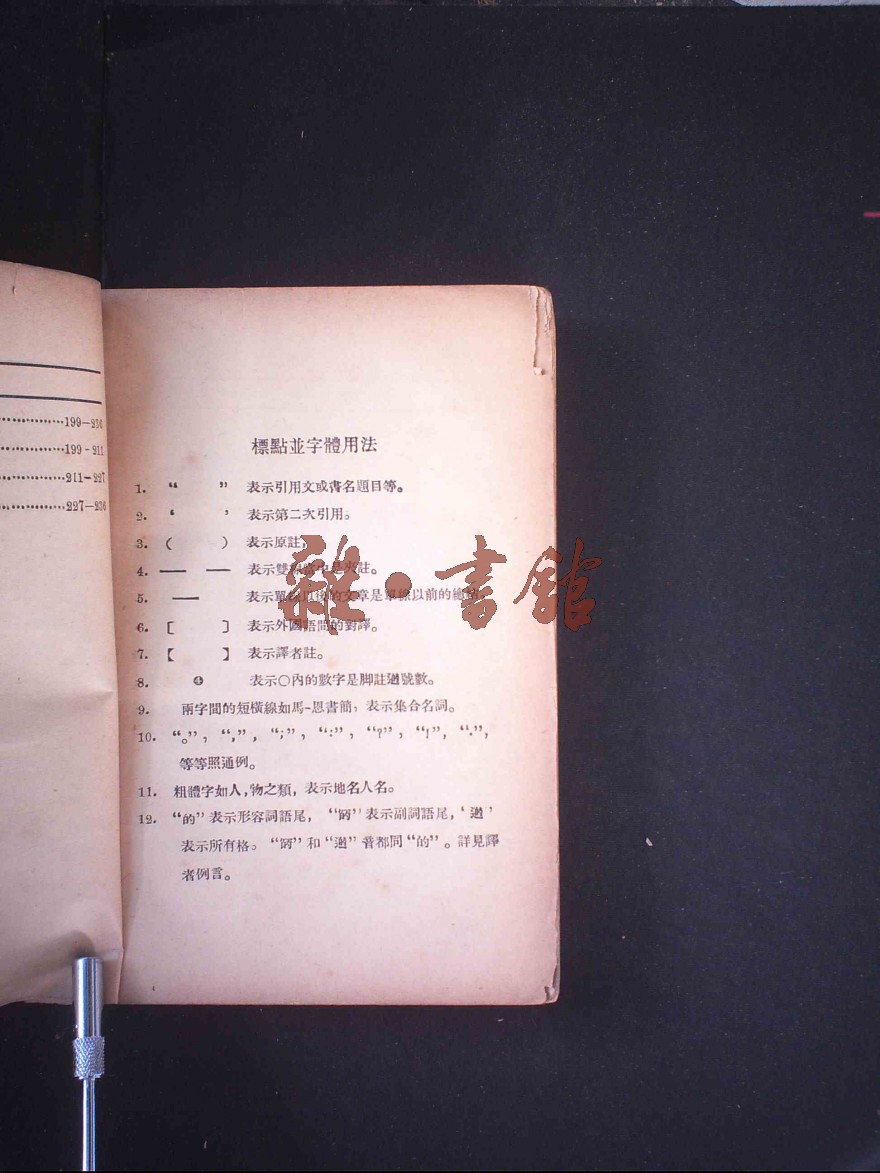 199—236
199-211
211—227
227—236
標點並字體用法
1. “ ” 表示引用文或書名題目等。
2. ‘ ’ 表示第二次引用。
3. ( ) 表示原註,
4. — — 表示雙線當中是夾註。
5. — 表示單線以後的文章是單線以前的總結
6. [ ] 表示外國語間的對譯。
7. 【 】 表示譯者註。
8. ❹ 表示○內的數字是脚註號數。
9. 兩字間的短橫線如馬-恩書簡, 表示集合名詞。
10. “。”, “,”, “;”, “:”, “?”, “!”, “.”,
等等照通例。
11. 粗體字如人,物之類, 表示地名人名。
12. “的” 表示形容詞語尾, 表示副詞語尾,
表示所有格。 和 音都同 “的”。詳見譯
者例言。
1
雜·書館